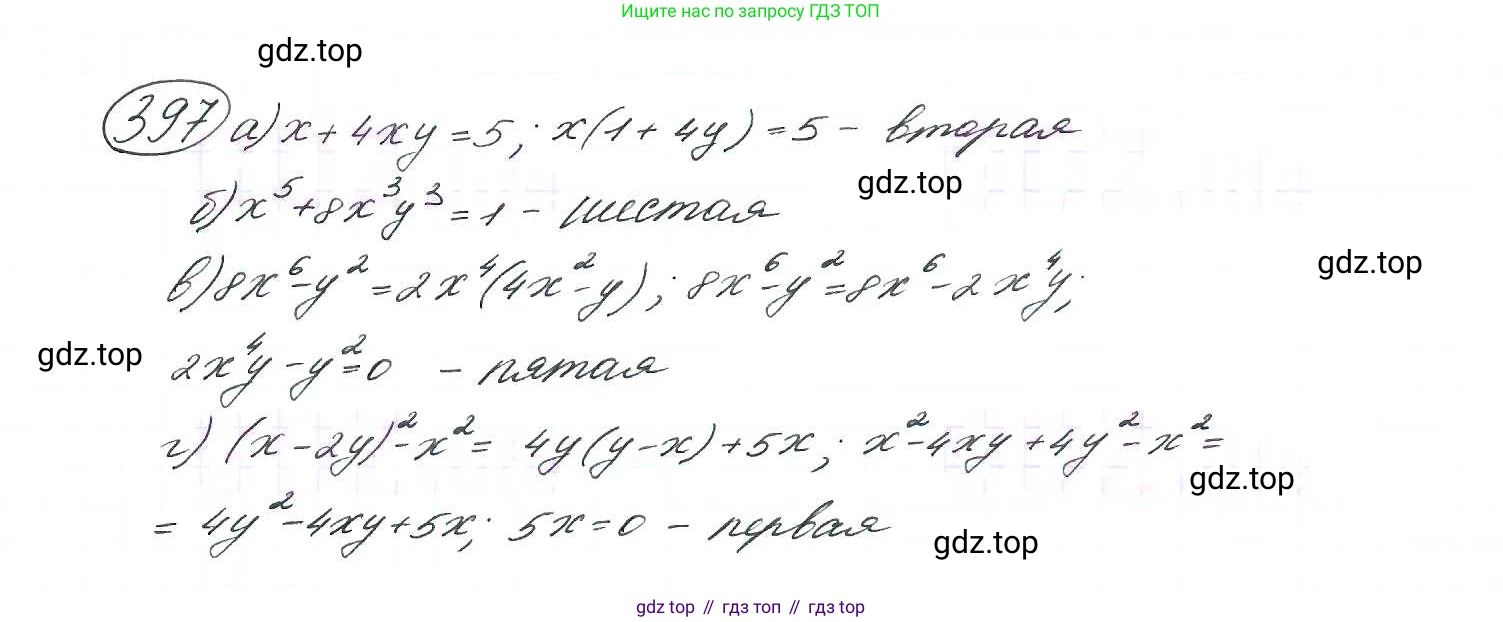 Ищите нас по запросу ГДЗ ТОП
gdz.top
397 а) x + 4xy = 5; x(1 + 4y) = 5 - вторая
gdz.top
б) x⁵ + 8x³y³ = 1 - шестая
gdz.top
в) 8x⁶ - y² = 2x⁴(4x² - y); 8x⁶ - y² = 8x⁶ - 2x⁴y;
gdz.top
2x⁴y - y² = 0 - пятая
г) (x - 2y)² - x² = 4y(y - x) + 5x; x² - 4xy + 4y² - x² =
gdz.top
= 4y² - 4xy + 5x; 5x = 0 - первая
gdz.top
gdz top // гдз топ // gdz top